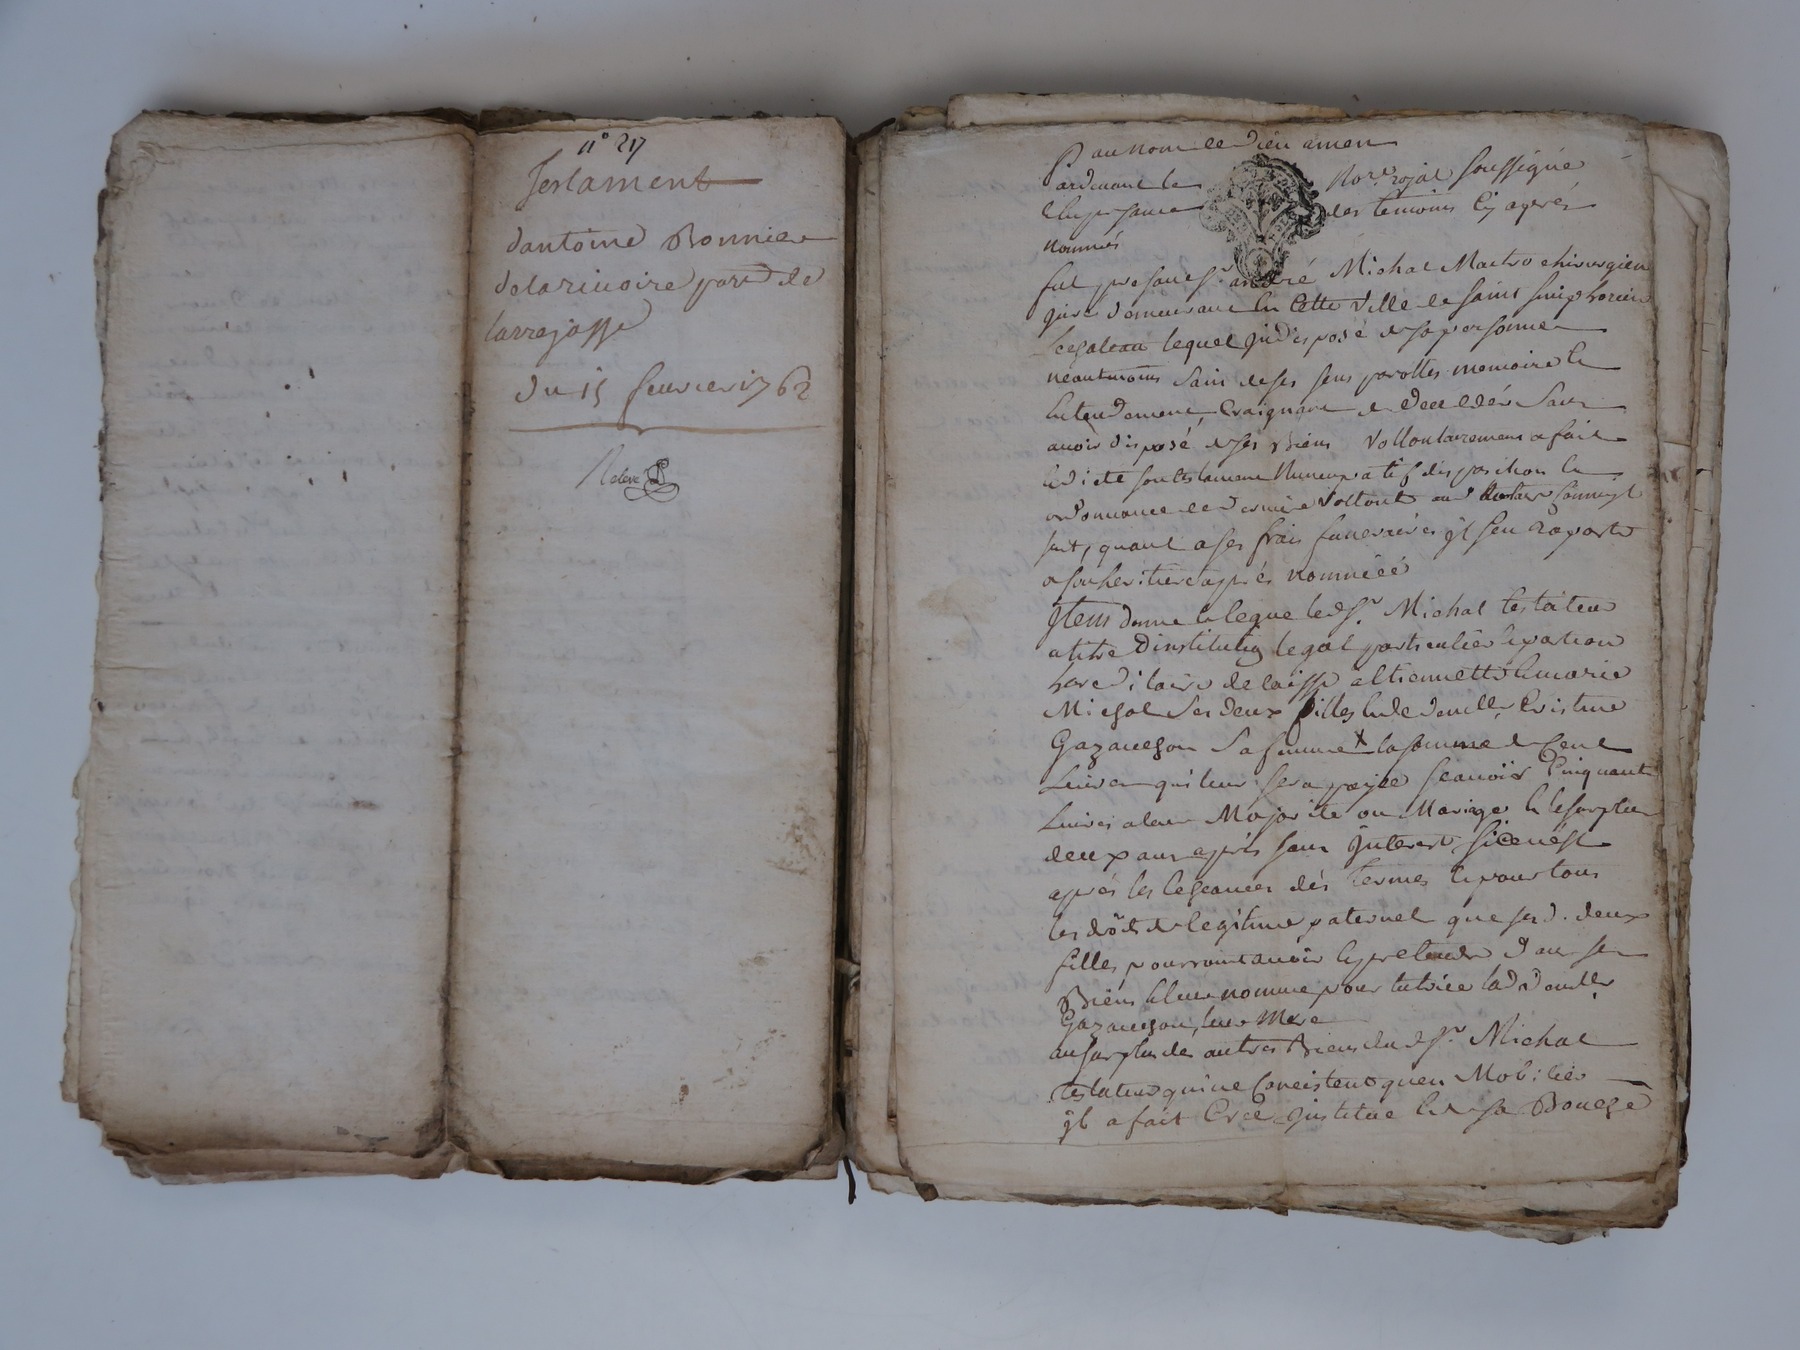 n° 217
Testament
dantoine Bonnier
delarivoire parr de
larrajasse
du 15 feuvrier 1762
au nom de dieu amen
Pardevant le Nore. royal soussigné
et En presance des temoins Cy aprés
nommés
fut presant Sr. andré Michal Maitre chirurgien
juré demeurant En Cette Ville de Saint Simphorien
Lechateau lequel jndisposé de sa personne
neantmoins Sain de ses sens parolles memoire Et
Entendement, Craignant de decedér Sans
avoir disposé de ses Biens Vollontairement a fait
Et dicté son testament Nuncupatif disposition Et
ordonnance de derniere Vollonté aud. Notaire Comme
suit, quant a ses frais funeraires jl sen raporte
a son heritiere aprés nommèé
Jtem donne Et legue led. Sr. Michal testateur
a titre D'institution legat particuliér Et portion
hereditaire delaisse a Etiennette Et marie
Michal Ses deux filles Et de demlle. Cristine
Gazanchon Sa femme x la somme de Cent
Livres qui leur sera payée scavoir Cinquante
Livres a leur Majorité ou Mariage Et le surplus
deux ans aprés sans jnterest si ce n'est
aprés les Echeances dés termes Et pour tous
les droits de legitime paternel que sesd. deux
filles pourroint avoir Et pretendre dans ses
Biens Et leur nomme pour tutrice lad. demlle.
Gazanchon, leur Mere
au surplus des autres Biens dud. Sr. Michal
testateur qui ne Concistent quen Mobilier
jl a fait Créé jnstitué Et de sa Bouche